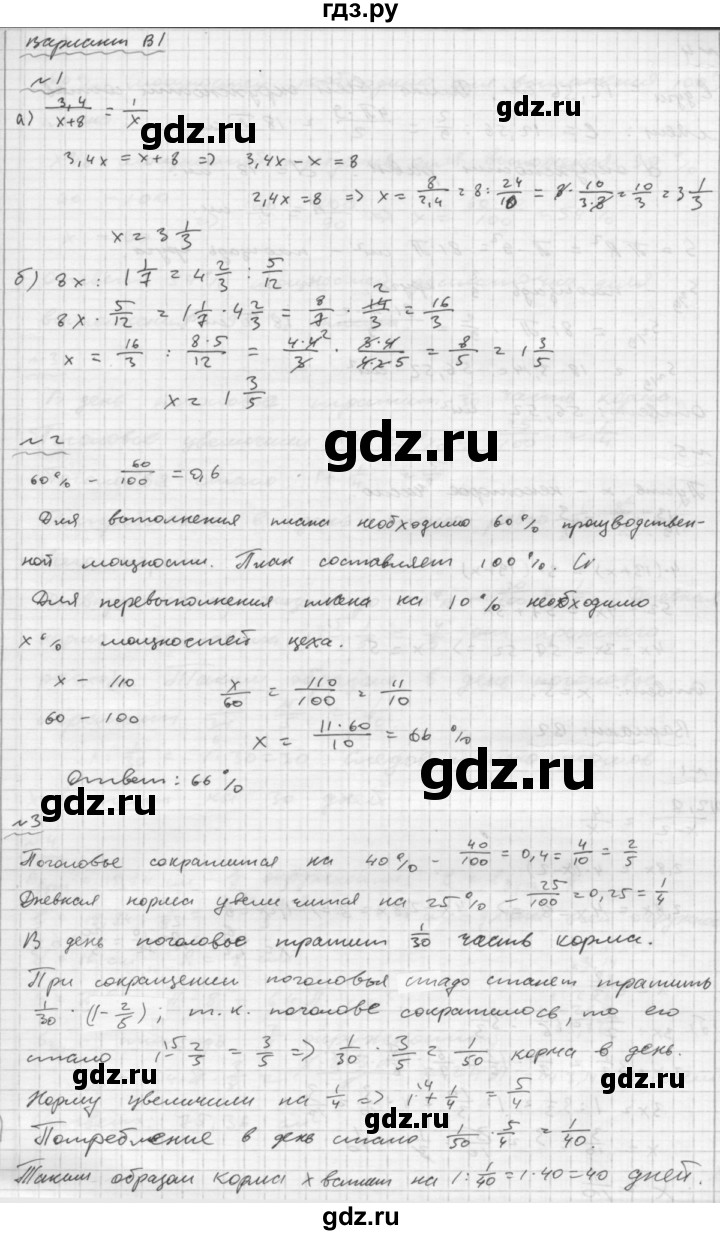 гдз.ру
Вариант В1
№1
а) 3,4/(x+8) = 1/x
gdz.ru
gdz.ru
3,4x = x+8 => 3,4x - x = 8
2,4x = 8 => x = 8/2,4 = 8 : 24/10 = 8 · 10/(3·8) = 10/3 = 3 1/3
x = 3 1/3
б) 8x : 1 1/7 = 4 2/3 : 5/12
8x · 5/12 = 1 1/7 · 4 2/3 = 8/7 · 14/3 = 16/3
x = 16/3 : 8·5/12 = 4·4/3 · 3·4/4·2·5 = 8/5 = 1 3/5
x = 1 3/5
gdz.ru
№2
60% - 60/100 = 0,6
Для выполнения плана необходимо 60% производствен-
ной мощности. План составляет 100%.
Для перевыполнения плана на 10% необходимо
x% мощностей цеха.
x - 110
60 - 100
x/60 = 110/100 = 11/10
x = 11·60/10 = 66 %
gdz.ru
Ответ: 66%
gdz.ru
№3
Поголовье сократится на 40% - 40/100 = 0,4 = 4/10 = 2/5
Дневная норма увеличится на 25% - 25/100 = 0,25 = 1/4
В день поголовье тратит 1/30 часть корма.
При сокращении поголовья стадо станет тратить
1/30 · (1 - 2/5); т.к. поголове сократилось, то его
стало 1 - 2/5 = 3/5 => 1/30 · 3/5 = 1/50 корма в день.
gdz.ru
gdz.ru
Норму увеличили на 1/4 => 1 + 1/4 = 5/4
Потребление в день стало 1/50 · 5/4 = 1/40.
Таким образом корма хватит на 1 : 1/40 = 1·40 = 40 дней.
gdz.ru